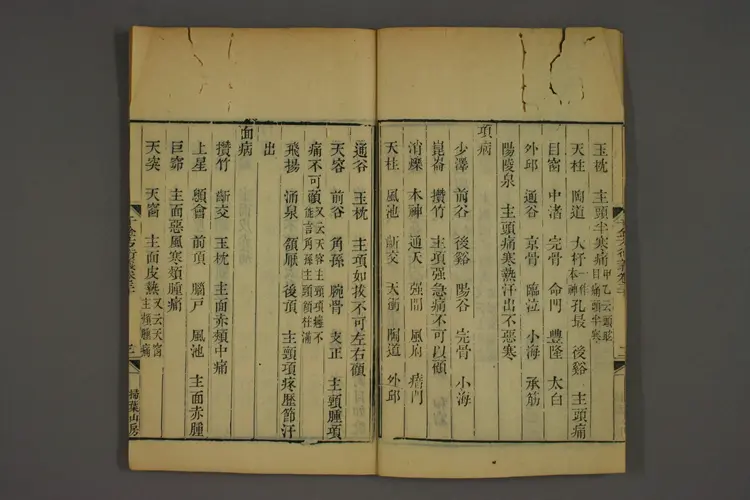 玉枕　主頭半寒痛甲乙云頭眩目痛頭半寒
天柱　陶道　大杼一作本神　孔最　後谿　主頭痛
目窗　中渚　完骨　命門　豐隆　太白
外邱　通谷　京骨　臨泣　小海　承筋
陽陵泉　主頭痛寒熱汗出不惡寒
項病
少澤　前谷　後谿　陽谷　完骨　小海
崑崙　攢竹　主項强急痛不可以顧
消爍　本神　通天　强間　風府　瘖門
天柱　風池　齗交　天衝　陶道　外邱
通谷　玉枕　主項如拔不可左右顧
天容　前谷　角孫　腕骨　支正　主頸腫項
痛不可顧又云天容主頸項癰不能言角孫主頸頷柱滿
飛揚　涌泉　頷厭　後頂　主頸項疼歷節汗
出
面病
攢竹　齗交　玉枕　主面赤頰中痛
上星　顖會　前頂　腦戶　風池　主面赤腫
巨窌　主面惡風寒頰腫痛
天突　天窗　主面皮熱又云天窗主頰腫痛
千金方衍義卷三十
掃葉山房